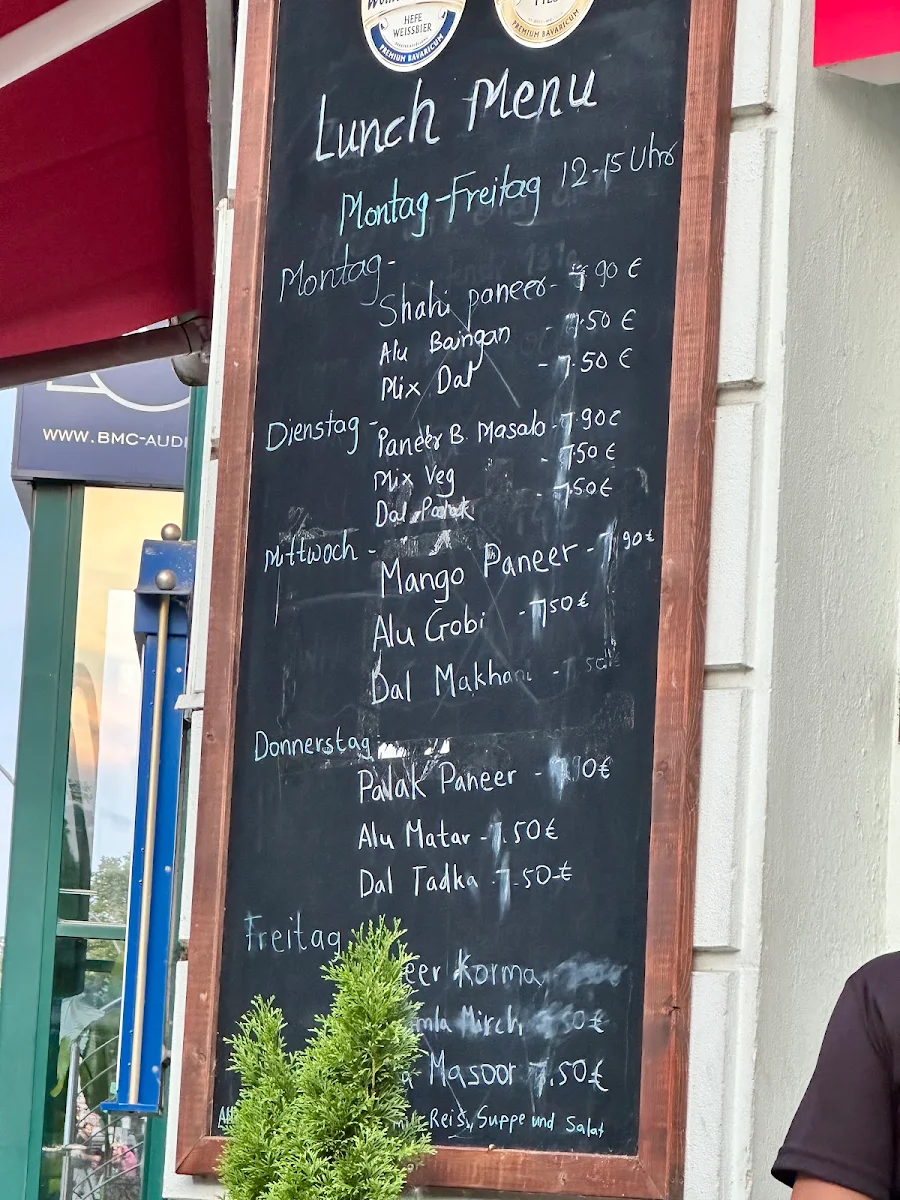 HEFE
WEISSBIER
PREMIUM BAVARICUM
PREMIUM BAVARICUM
Lunch Menu
Montag-Freitag 12-15 Uhr
Montag-
Shahi paneer- 7.90 €
Alu Baingan - 7.50 €
Mix Dal - 7.50 €
Dienstag -
Paneer B. Masala - 7.90€
Mix Veg - 7.50 €
Dal Palak - 7.50€
Mittwoch -
Mango Paneer - 7.90€
Alu Gobi - 7.50€
Dal Makhani - 7.50€
Donnerstag
Palak Paneer - 7.90€
Alu Matar - 7.50€
Dal Tadka - 7.50€
Freitag
Korma
Mirch 50€
Masoor 7.50€
Reis, Suppe und Salat
WWW.BMC-AUDI